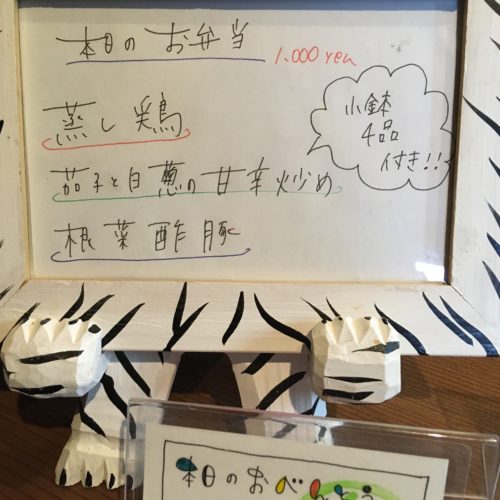 本日のお弁当
1.000yen
蒸し鶏
茄子と白葱の甘辛炒め
根菜酢豚
小鉢
4品
付き!!
本日のおべんとう